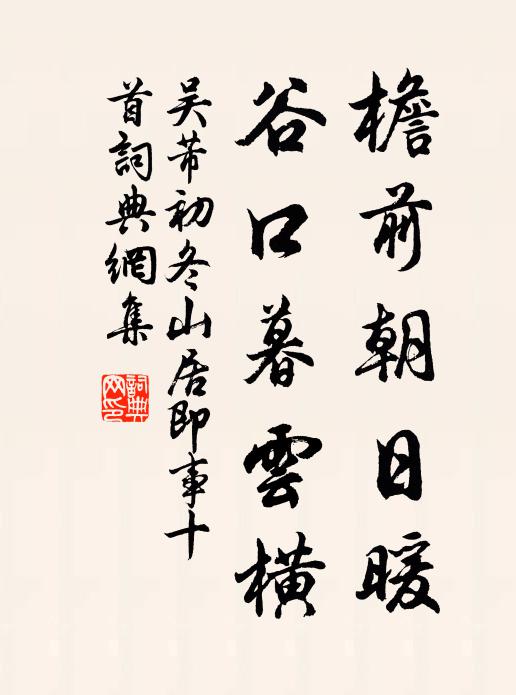 檐前朝日暖
谷口暮雲橫
吴芾初冬山居即事十
首詞典網集
詞典
网印